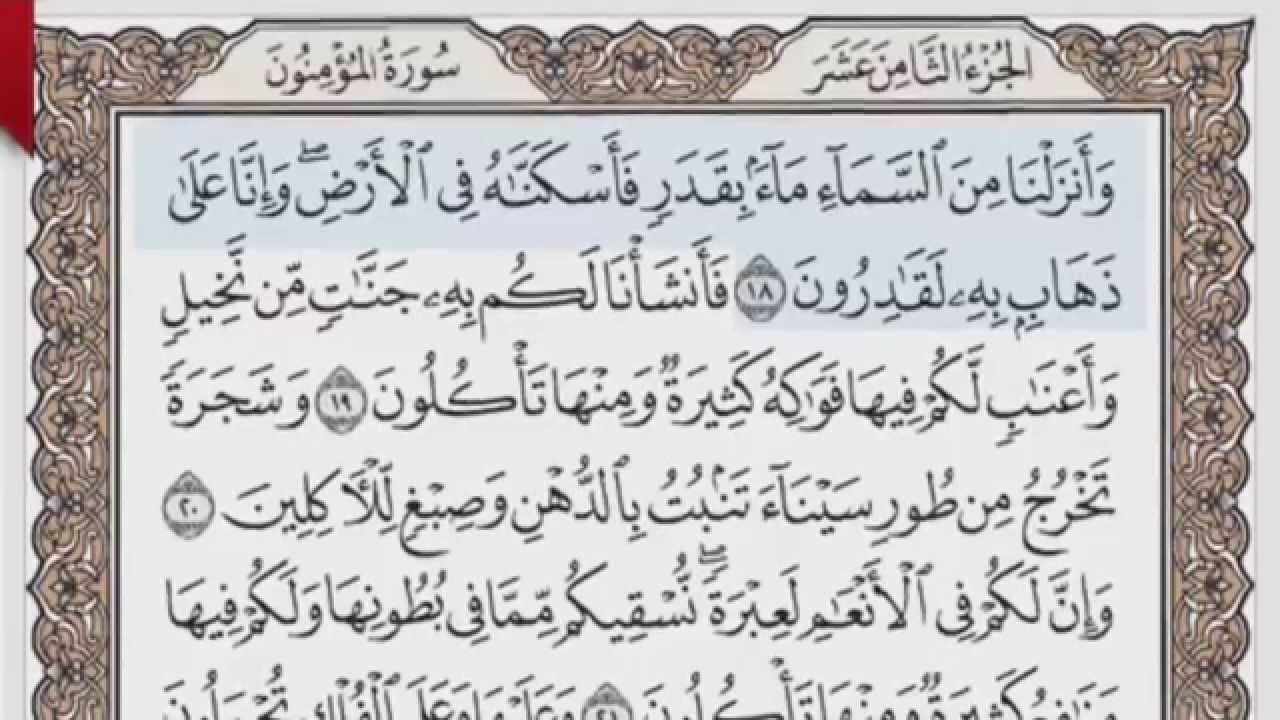 الجُزْءُ الثَّامِنَ عَشَرَ
سُورَةُ المُؤْمِنُونَ
وَأَنزَلْنَا مِنَ ٱلسَّمَآءِ مَآءَۢ بِقَدَرٖ فَأَسْكَنَّٰهُ فِي ٱلْأَرْضِۖ وَإِنَّا عَلَىٰ
ذَهَابِۭ بِهِۦ لَقَٰدِرُونَ ١٨ فَأَنشَأْنَا لَكُم بِهِۦ جَنَّٰتٖ مِّن نَّخِيلٖ
وَأَعْنَٰبٖ لَّكُمْ فِيهَا فَوَٰكِهُ كَثِيرَةٞ وَمِنْهَا تَأْكُلُونَ ١٩ وَشَجَرَةٗ
تَخْرُجُ مِن طُورِ سَيْنَآءَ تَنۢبُتُ بِٱلدُّهْنِ وَصِبْغٖ لِّلْأٓكِلِينَ ٢٠
وَإِنَّ لَكُمْ فِي ٱلْأَنْعَٰمِ لَعِبْرَةٗۖ نُّسْقِيكُم مِّمَّا فِي بُطُونِهَا وَلَكُمْ فِيهَا
مَنَٰفِعُ كَثِيرَةٞ وَمِنْهَا تَأْكُلُونَ ٢١ وَعَلَيْهَا وَعَلَى ٱلْفُلْكِ تُحْمَلُونَ